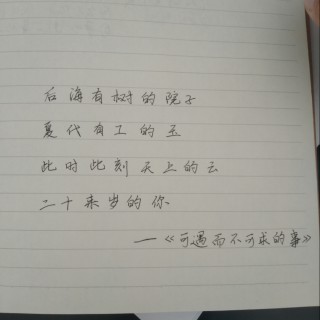 后海有树的院子
夏代有工的玉
此时此刻天上的云
二十来岁的你
—《可遇而不可求的事》